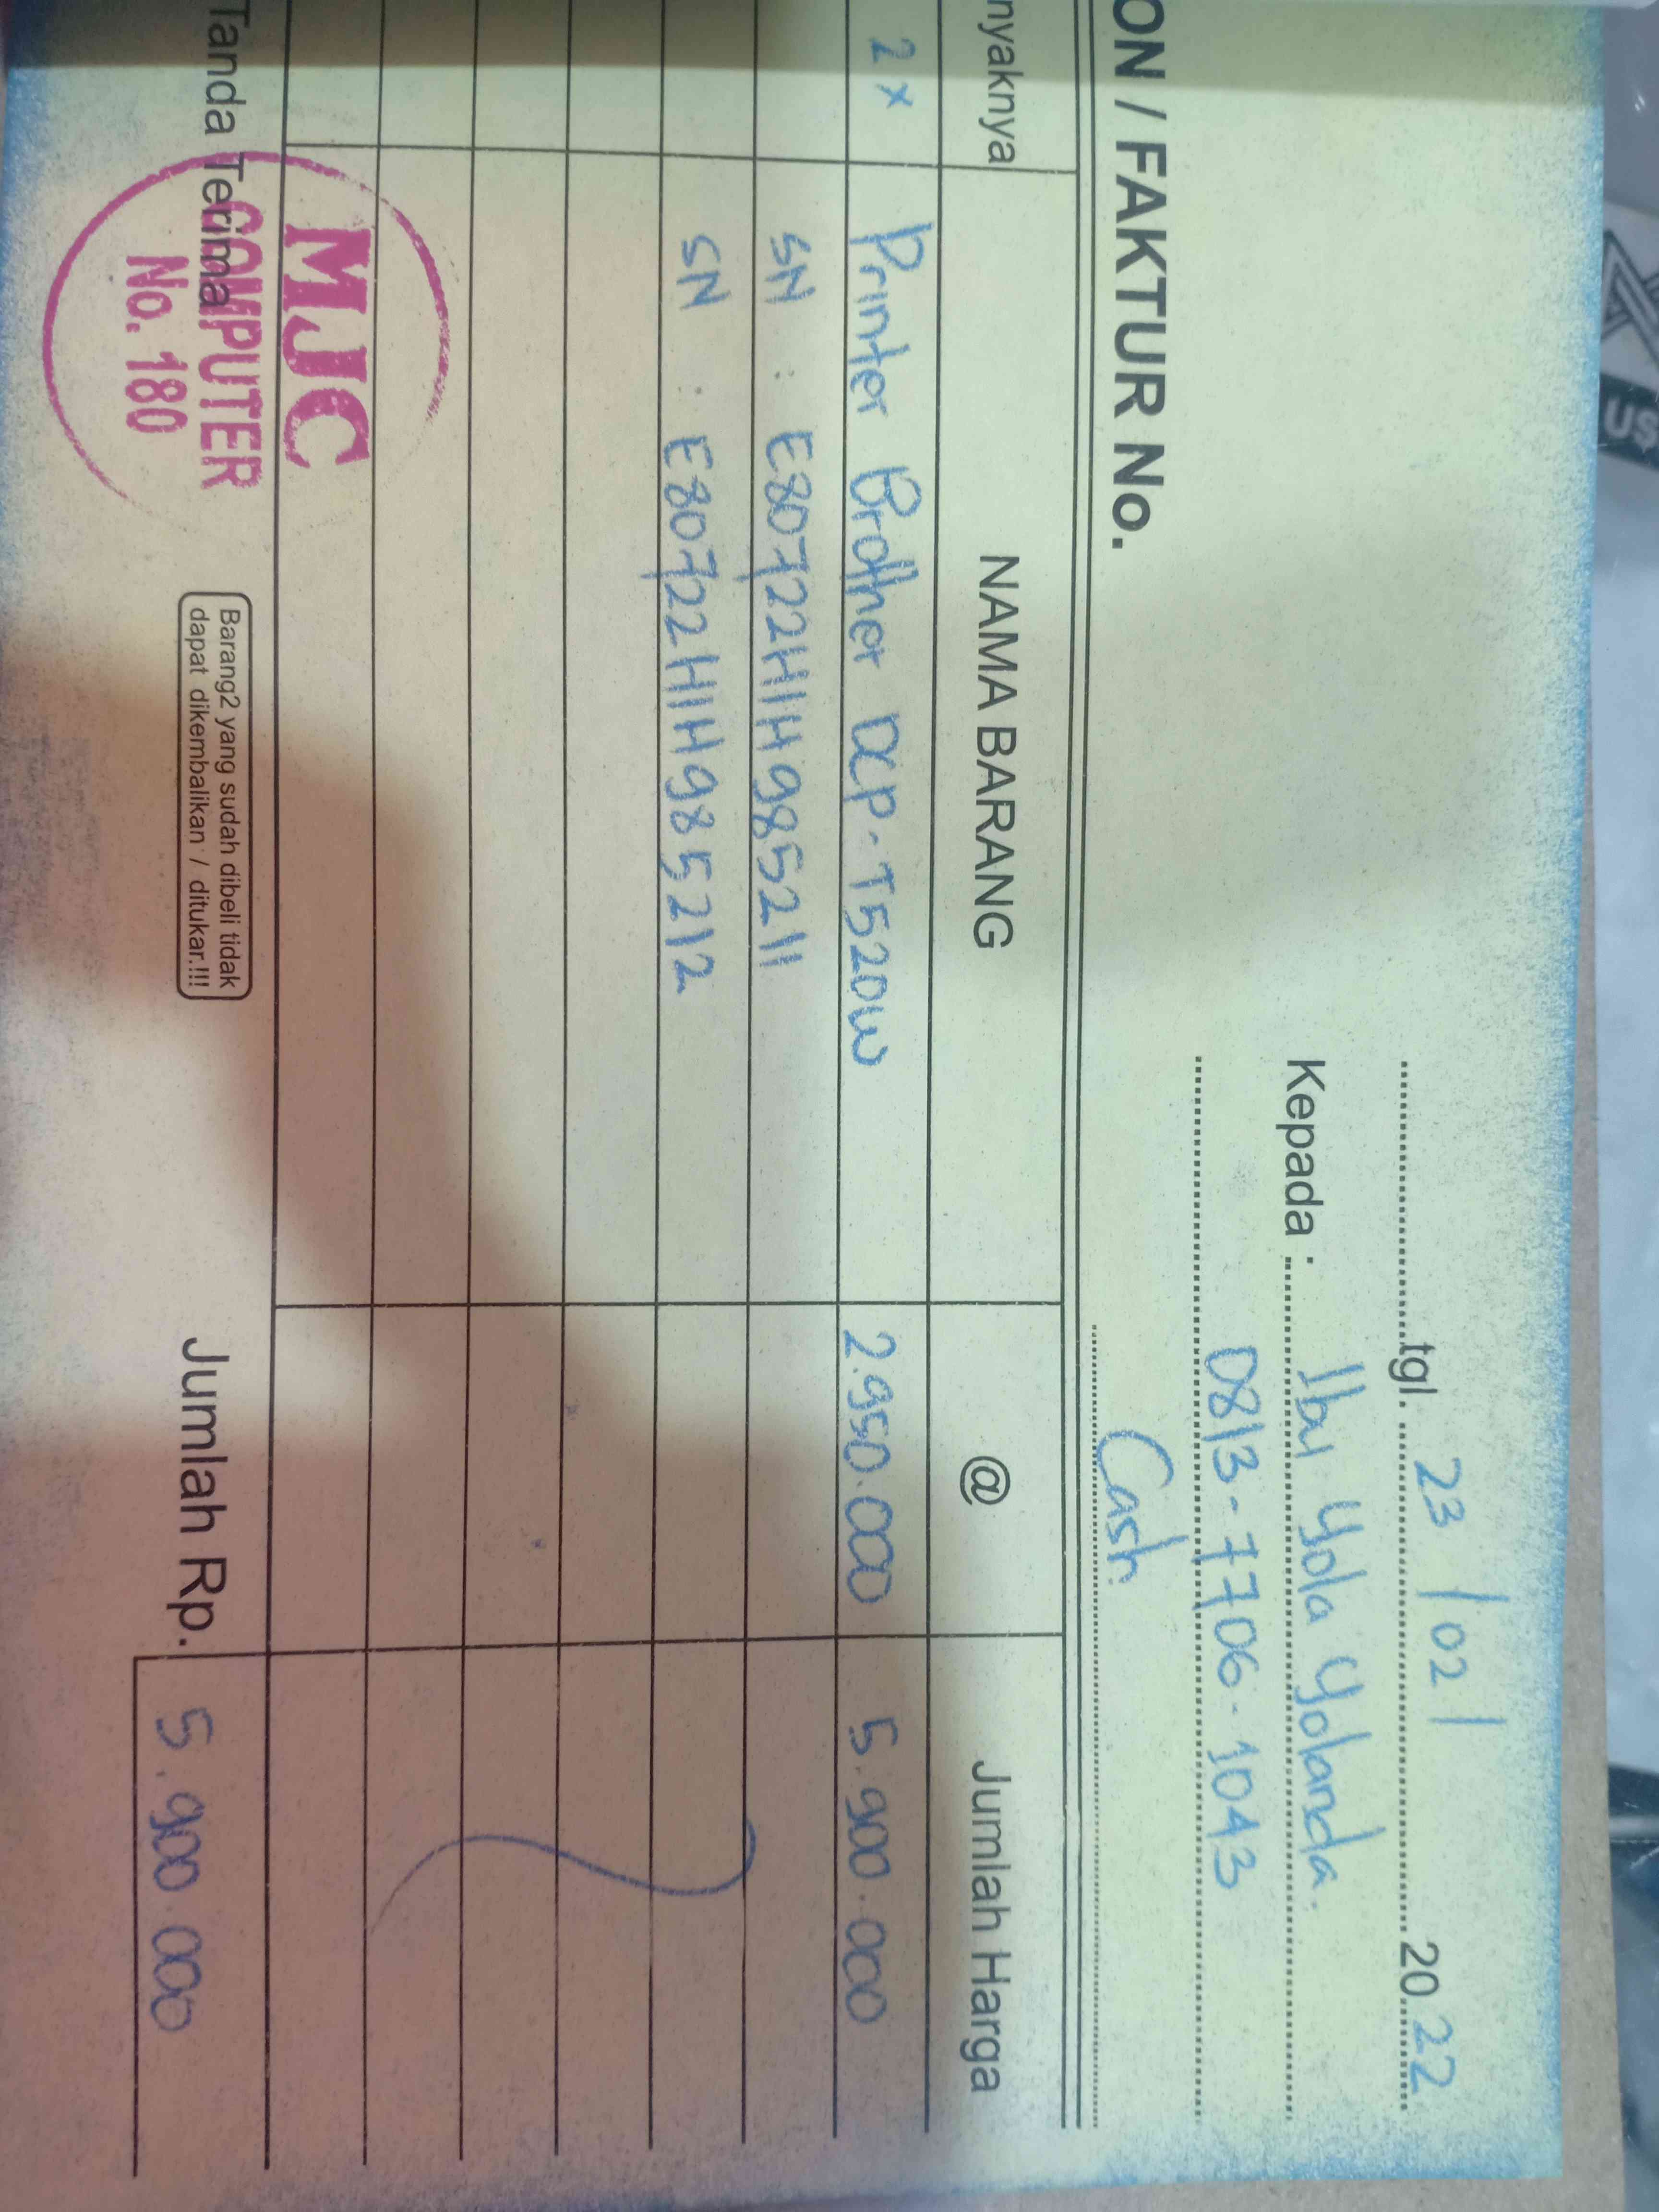 tgl. 23 / 02 / 2022
Kepada : Ibu Yola Yolanda.
0813-7706-1043
ON / FAKTUR No.
Cash
nyaknya NAMA BARANG @ Jumlah Harga
2 x Printer Brother DCP-T520W 2.950.000 5.900.000
SN : E80722H1H985211
SN : E80722H1H985212
Tanda Terima
MJC
COMPUTER
No. 180
Barang2 yang sudah dibeli tidak
dapat dikembalikan / ditukar.!!!
Jumlah Rp. 5.900.000
US